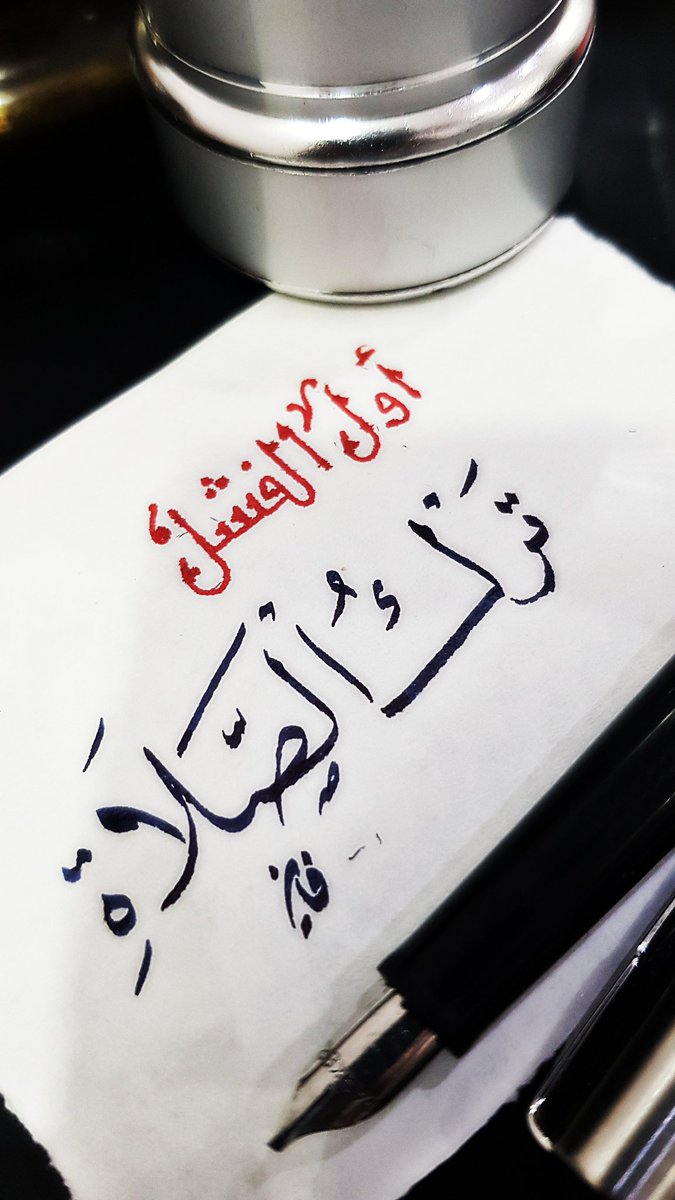 أول الفشل
تَركُ الصَّلَاةِ